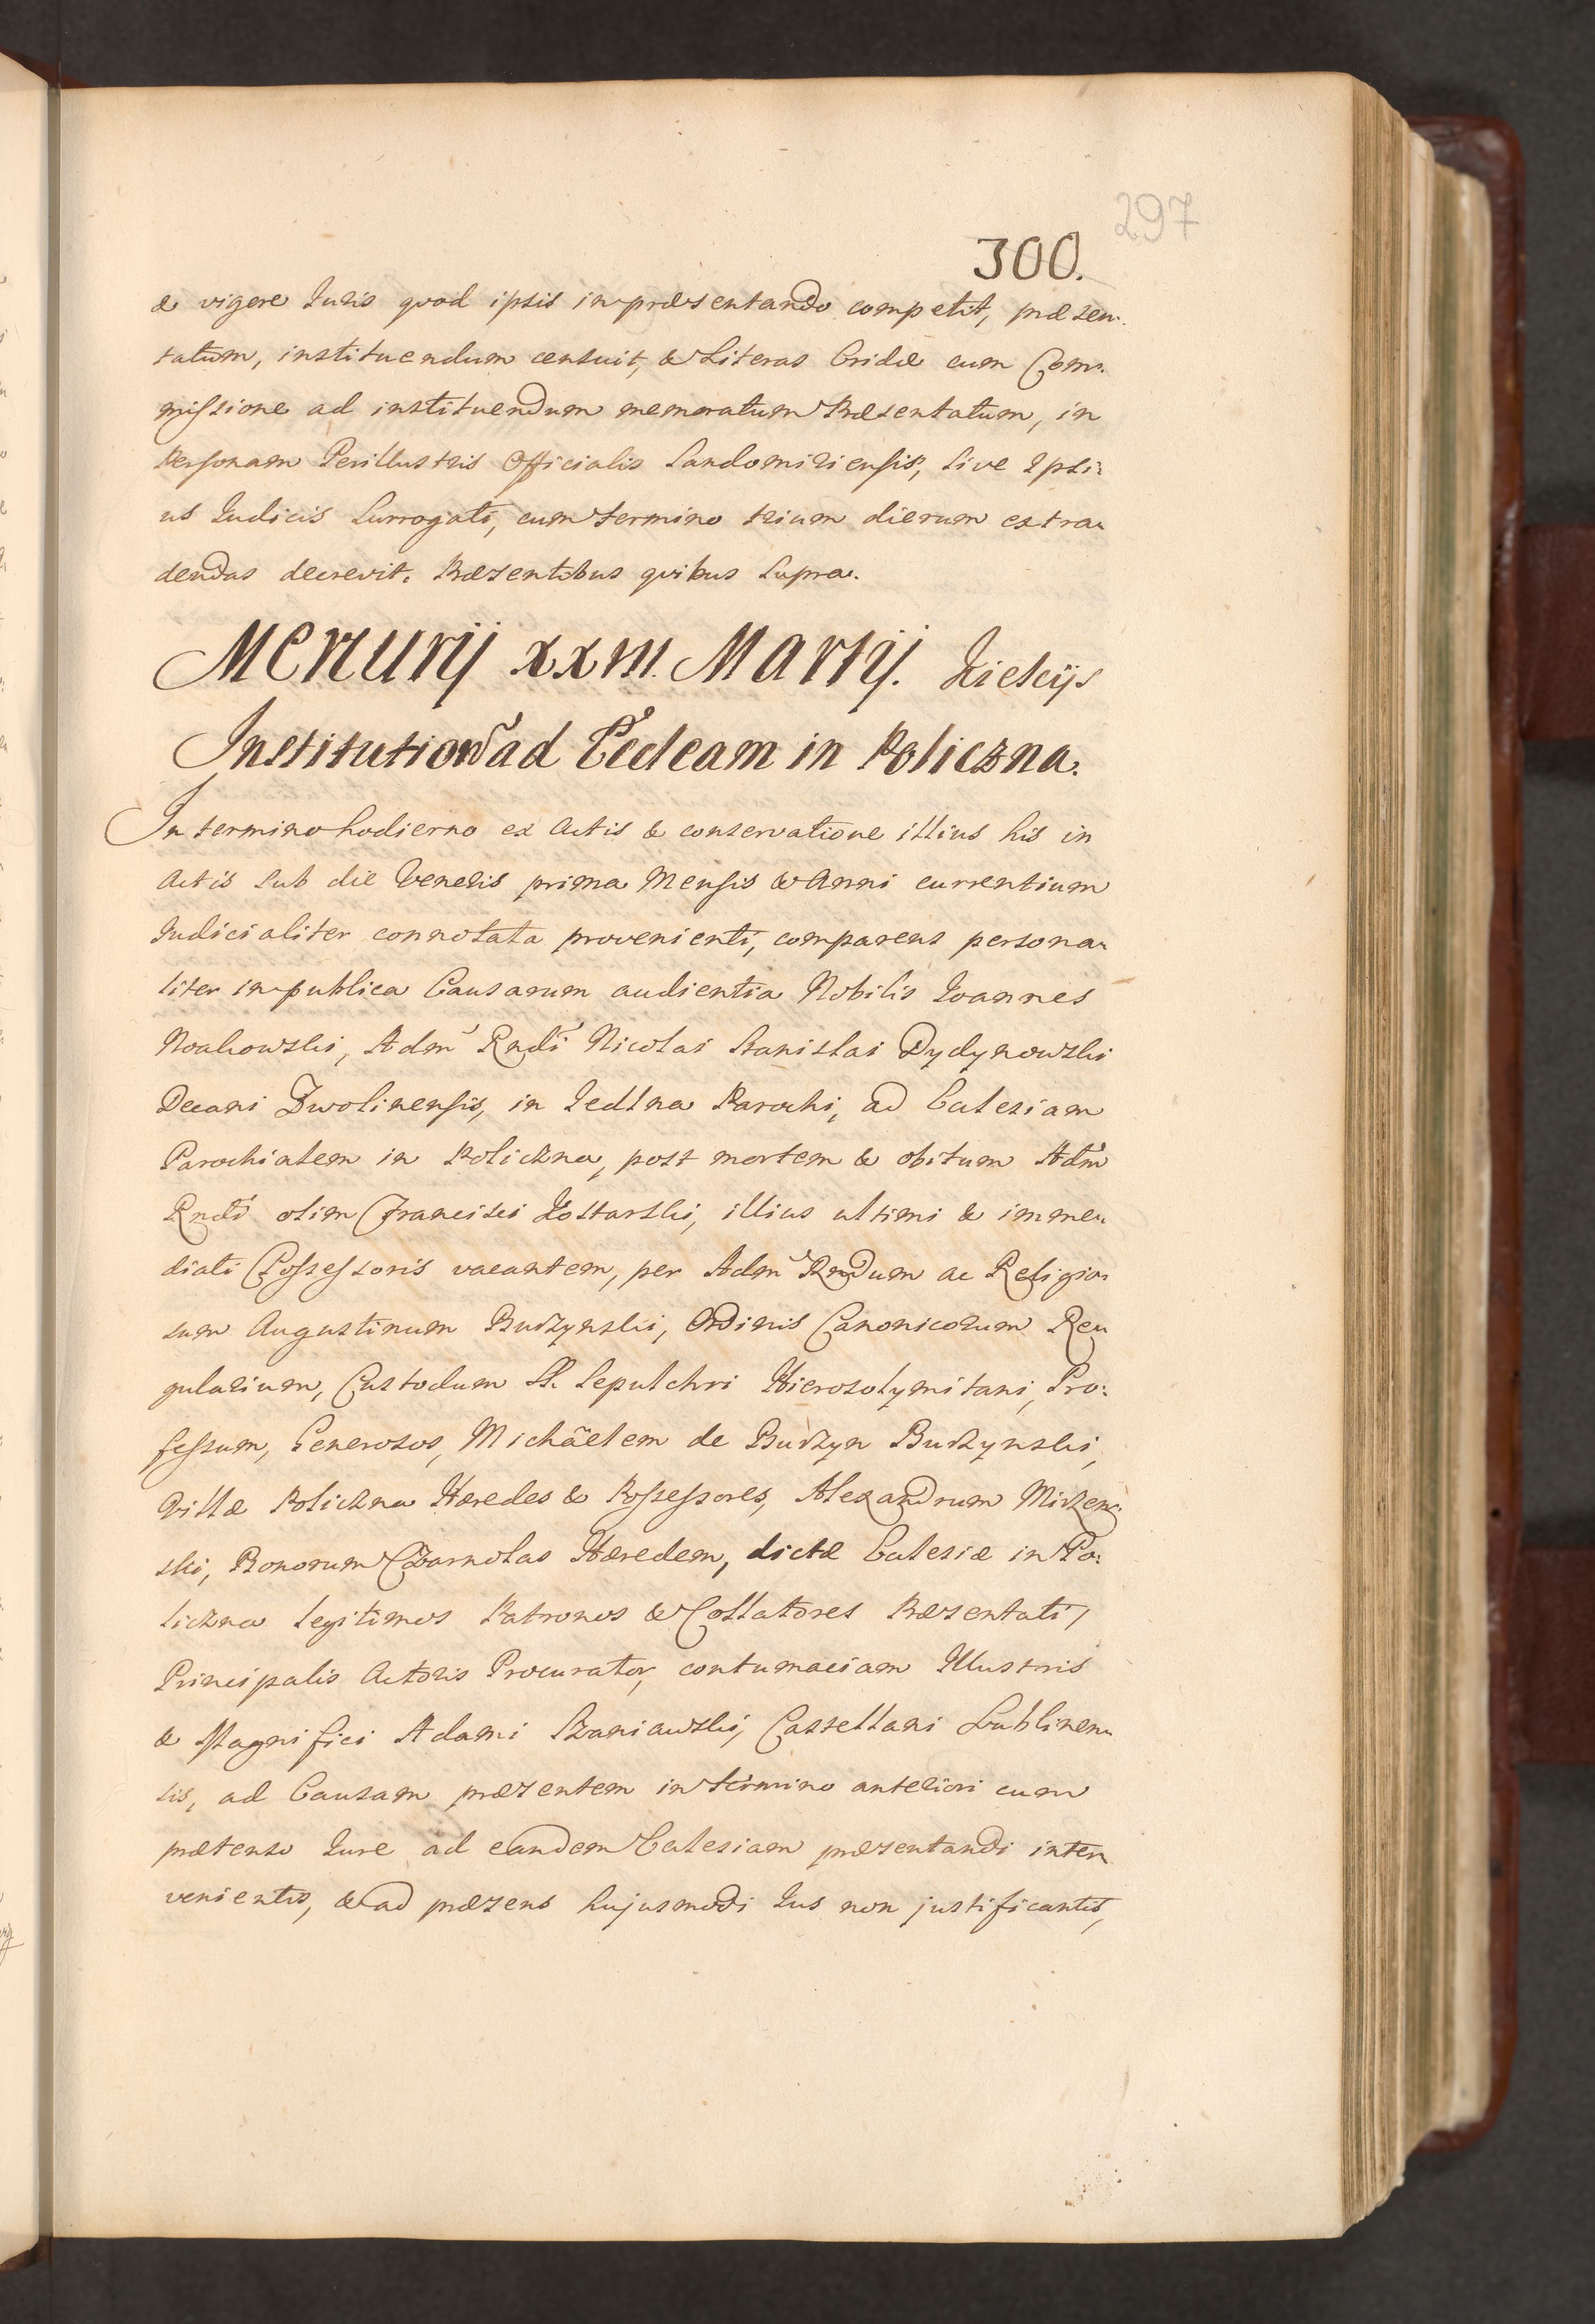 297
300.
& vigore Iuris quod ipsis in præsentando competit, præsen-
tatum, instituendum censuit, & Literas Cridæ cum Com-
missione ad instituendum memoratum Præsentatum, in
Personam Perillustris Officialis Sandomiriensis, sive Ipsi-
us Iudicis Surrogati, cum termino trium dierum extra-
dendas decrevit. Præsentibus quibus supra.
Mercurij xxIII. Martij. Kielcijs
Institution̄ ad Eccleam in Policzna.
In termino hodierno ex Actis & conservatione illius his in
Actis sub die Veneris prima Mensis & Anni currentium
Iudicialiter connotata provenienti, comparens persona-
liter in publica Causarum audientia Nobilis Ioannes
Noakowski, Adm̄ Rndi Nicolai Stanislai Dydynowski
Decani Zwolinensis, in Iedlna Parochi, ad Ecclesiam
Parochialem in Policzna, post mortem & obitum Adm̄
Rndi olim Francisci Kostarski, illius ultimi & imme-
diati Possessoris vacantem, per Adm̄ Rndum ac Religio-
sum Augustinum Budzynski, Ordinis Canonicorum Re-
gularium, Custodum S. Sepulchri Hierosolymitani, Pro-
fessum, Generosos, Michäelem de Budzyn Budzynski,
Villæ Policzna Hæredes & Possessores, Alexandrum Mirzen-
ski, Bonorum Czarnolas Hæredem, dictæ Ecclesiæ in Po-
liczna legitimos Patronos & Collatores Præsentati,
Principalis Actoris Procurator, contumaciam Illustris
& Magnifici Adami Szaniawski, Castellani Lublinen-
sis, ad Causam præsentem in termino anteriori cum
prætenso Iure ad eandem Ecclesiam præsentandi inter-
venientis, & ad præsens hujusmodi Ius non justificantis,